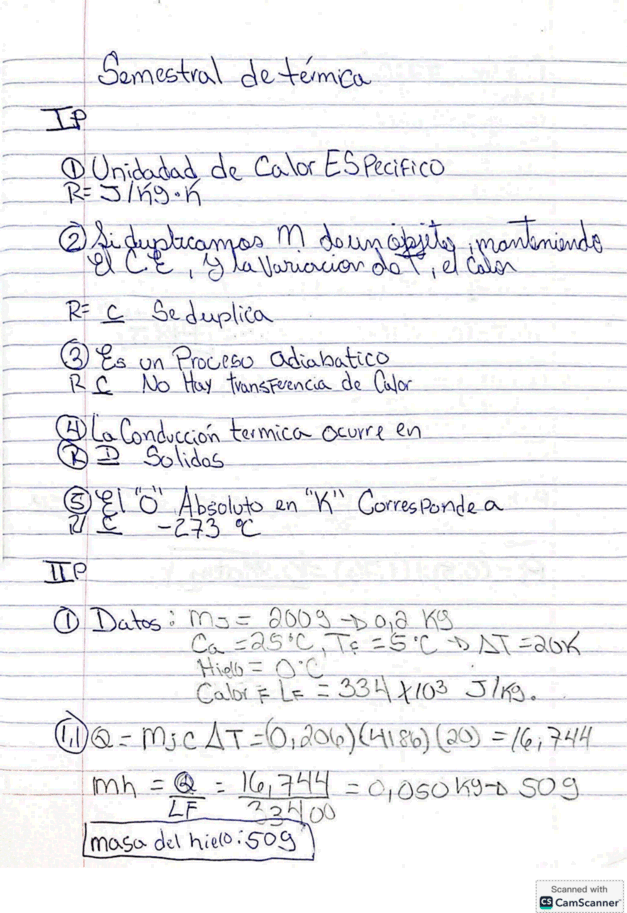 Semestral de térmica
I P
① Unidadad de Calor ESPecifico
R= J/Kg·K
② Si duplicamos M de un objeto, manteniendo
El C E, y la Variacion de T, el Calor
R= C Se duplica
③ Es un Proceso adiabatico
R C No Hay transferencia de Calor
④ La Conducción termica ocurre en
R D Solidos
⑤ El "0" Absoluto en "K" Corresponde a
R/ C -273 °C
II P
① Datos: MJ = 200g → 0,2 Kg
Ca = 25°C, TF = 5°C → ΔT = 20K
Hielo = 0°C
Calor F LF = 334 x10³ J/Kg.
1,1 Q = MJ C ΔT = (0,206)(4186)(20) = 16,744
mh = Q/LF = 16,744/33400 = 0,050 Kg → 50g
masa del hielo: 50g
Scanned with
CS CamScanner